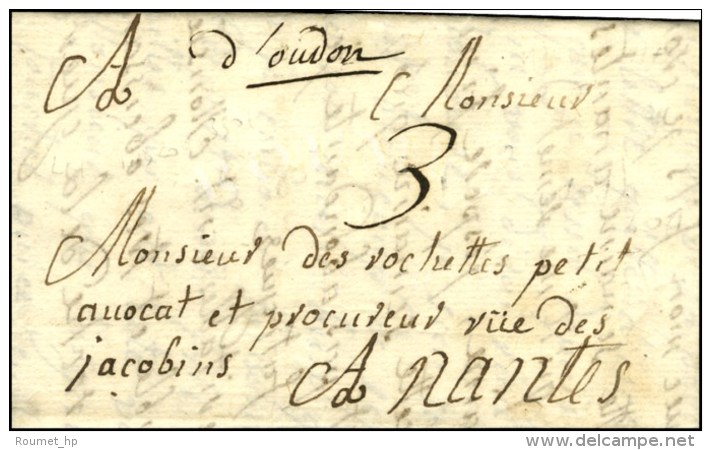 A d'oudon Monsieur
3
Monsieur des rochettes petit
auocat et procureur rüe des
jacobins A nantes
Roumet_hp
delcampe.net